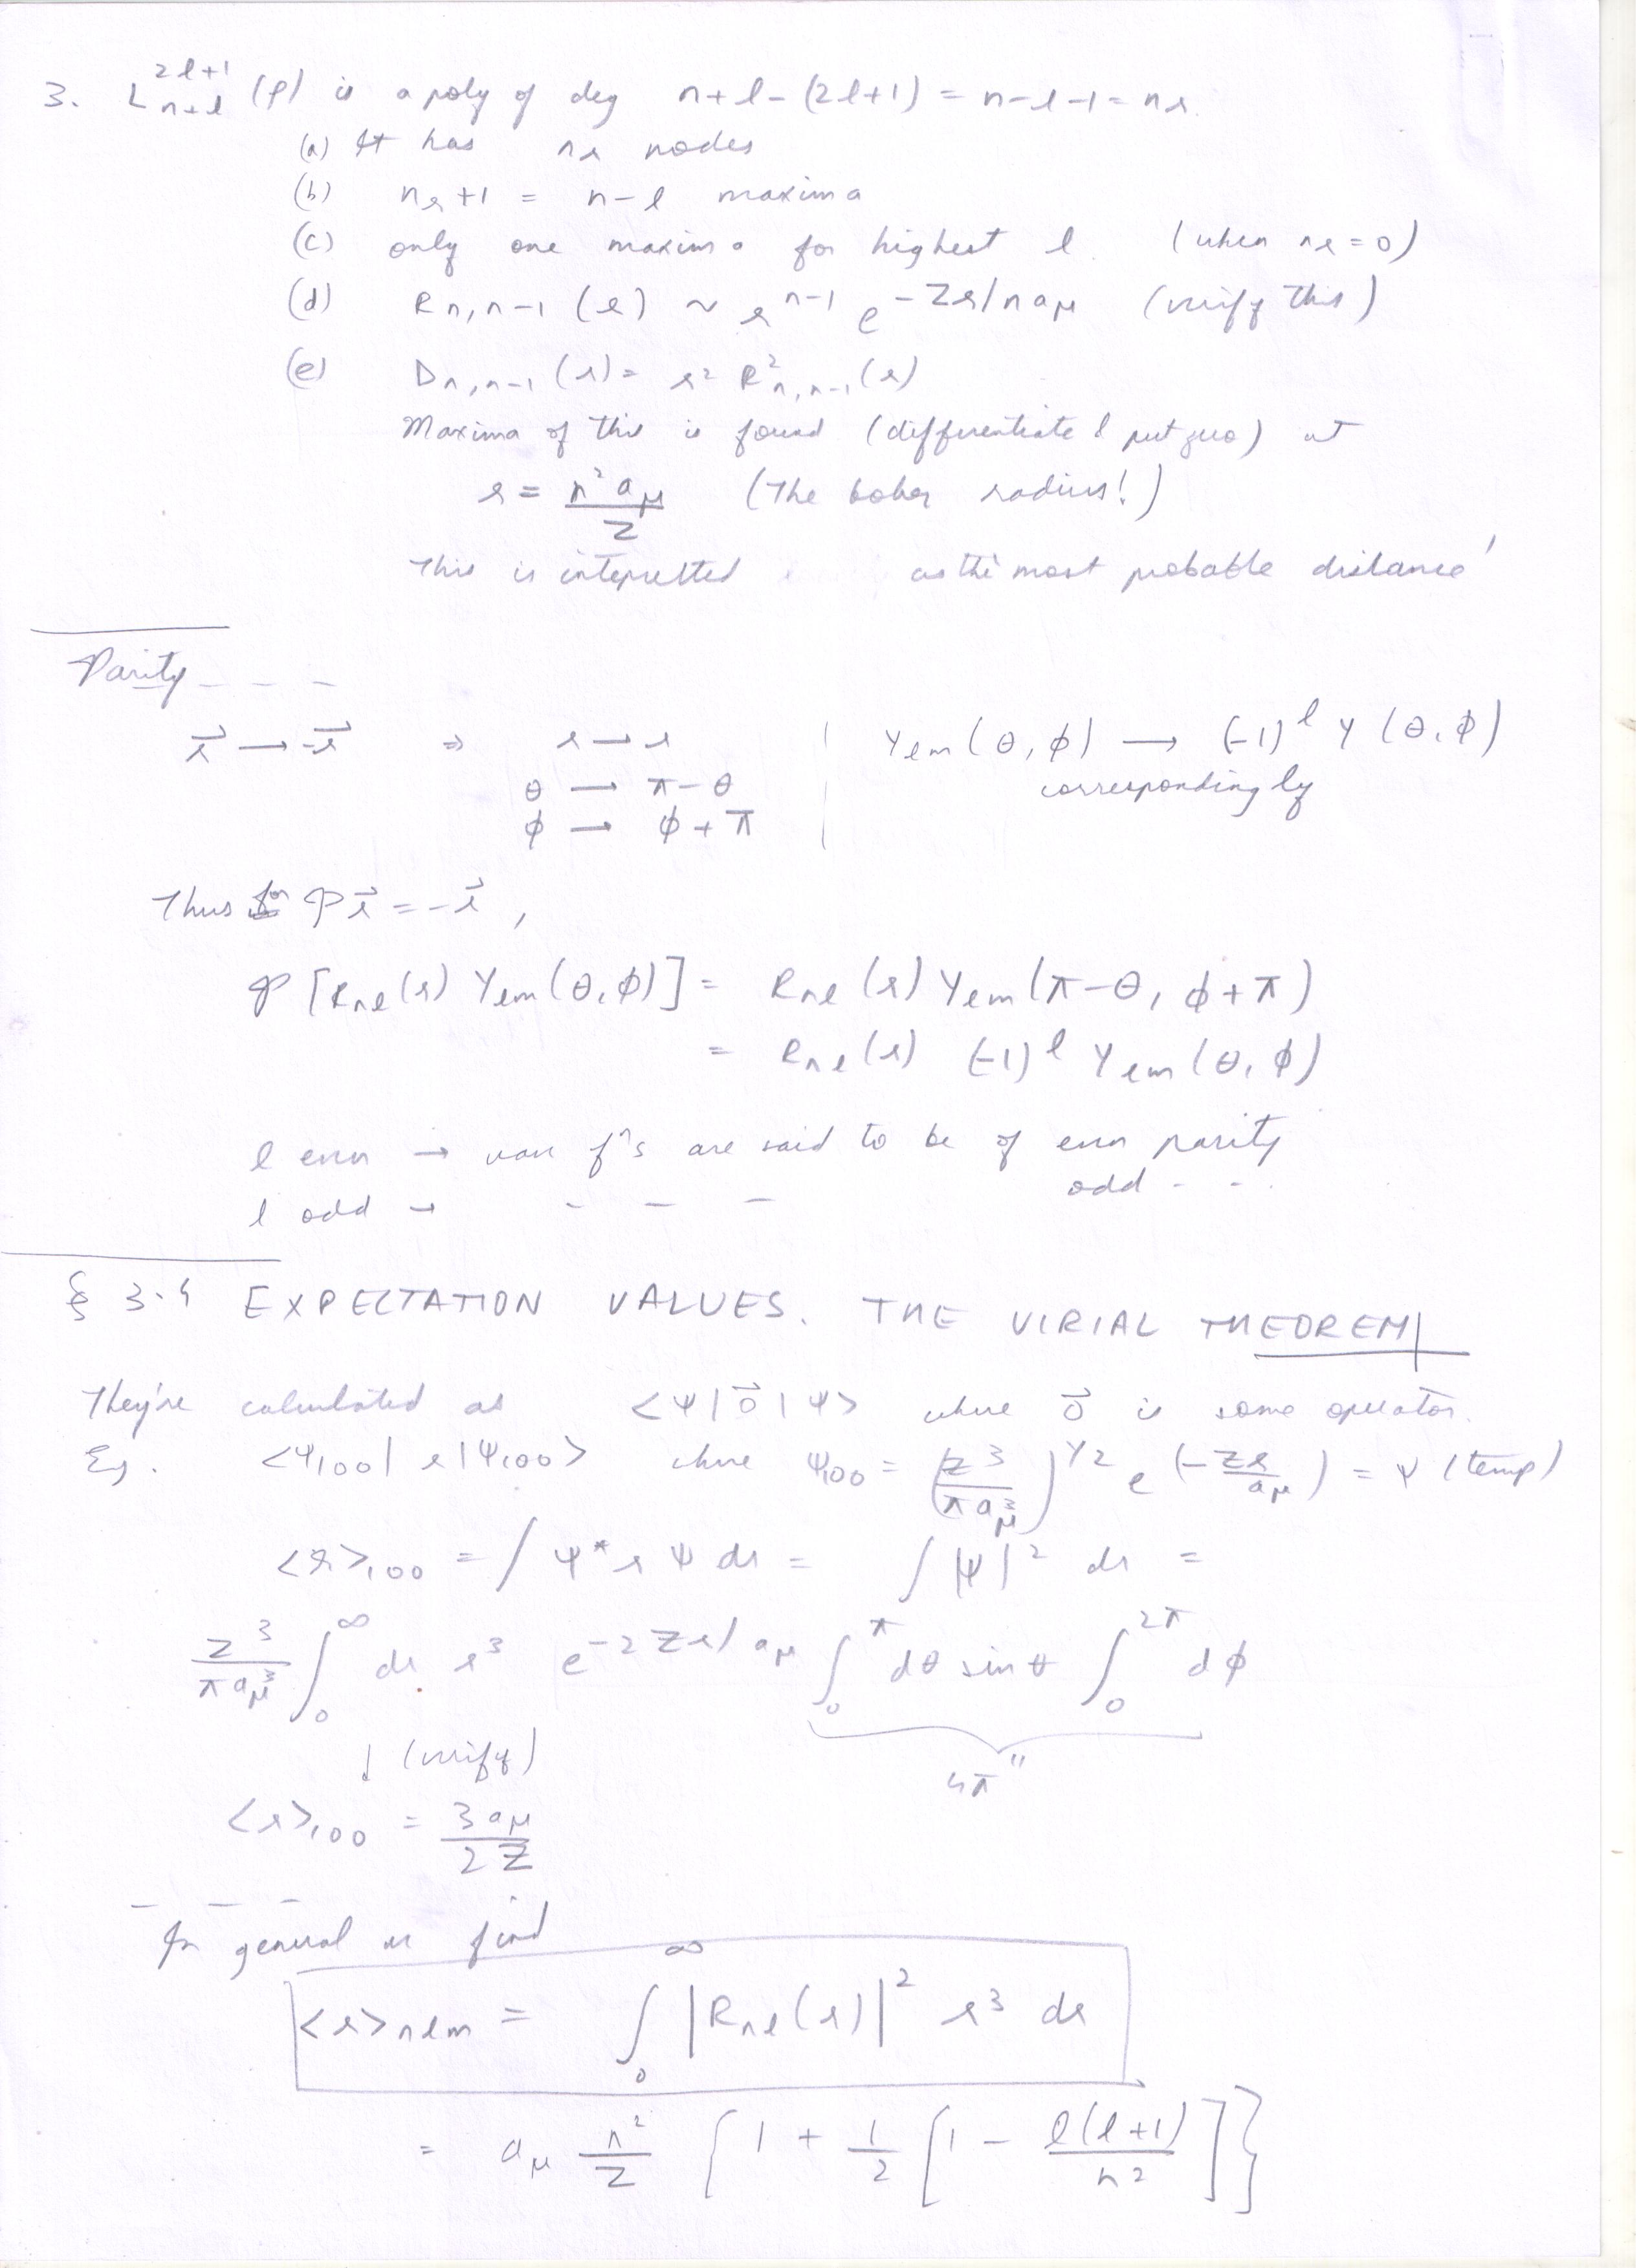 3. L^{2l+1}_{n+l} (ρ) is a poly of deg n+l-(2l+1) = n-l-1 = n_r.
(a) It has n_r nodes
(b) n_r+1 = n-l maxima
(c) only one maxima for highest l. (when n_r=0)
(d) R_{n,n-1} (r) ~ r^{n-1} e^{-Zr/na_μ} (verify this)
(e) D_{n,n-1} (r) = r² R²_{n,n-1} (r)
Maxima of this is found (differentiate & put zero) at
r = n² a_μ / Z (The bohor radius!)
This is interpretted as the most probable distance'
Parity - - -
r⃗ → -r⃗ ⇒ r → r | Y_{lm} (θ, φ) → (-1)^l Y (θ, φ)
θ → π-θ correspondingly
φ → φ+π
Thus for P r⃗ = -r⃗,
P [R_{nl}(r) Y_{lm}(θ, φ)] = R_{nl} (r) Y_{lm} (π-θ, φ+π)
= R_{nl} (r) (-1)^l Y_{lm} (θ, φ)
l even → wave fⁿs are said to be of even parity
l odd → - - - odd - -.
§ 3.4 EXPECTATION VALUES. THE VIRIAL THEOREM
They're calculated as <ψ|O⃗|ψ> where O⃗ is some operator.
Eg. <ψ_{100}| r |ψ_{100}> where ψ_{100} = (Z³/πa_μ³)^{1/2} e^(-Zr/a_μ) = ψ (temp)
<r>_{100} = ∫ ψ* r ψ dr = ∫ |ψ|² dr =
Z³/πa_μ³ ∫_0^∞ dr r³ e^{-2Zr/a_μ} ∫_0^π dθ sinθ ∫_0^{2π} dφ
↓ (verify) 4π"
<r>_{100} = 3a_μ / 2Z
- - -
In general we find
<r>_{nlm} = ∫_0^∞ |R_{nl}(r)|² r³ dr
= a_μ n²/Z { 1 + 1/2 [ 1 - l(l+1)/n² ] }